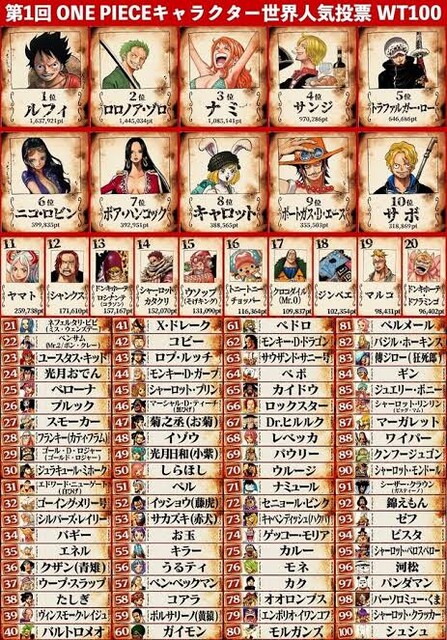 第1回 ONE PIECEキャラクター世界人気投票 WT100
1位
ルフィ
1,637,921pt
2位
ロロノア・ゾロ
1,445,034pt
3位
ナミ
1,085,141pt
4位
サンジ
970,286pt
5位
トラファルガー・ロー
646,686pt
6位
ニコ・ロビン
599,835pt
7位
ボア・ハンコック
392,951pt
8位
キャロット
388,565pt
9位
ポートガス・D・エース
355,503pt
10位
サボ
318,869pt
11
ヤマト
259,738pt
12
シャンクス
171,610pt
13
ドンキホーテ・ロシナンテ
(コラソン)
157,167pt
14
シャーロット・カタクリ
152,070pt
15
ウソップ
(そげキング)
131,090pt
16
トニートニー・チョッパー
116,364pt
17
クロコダイル
(Mr.0)
109,837pt
18
ジンベエ
102,354pt
19
マルコ
98,431pt
20
ドンキホーテ・ドフラミンゴ
96,402pt
21 ネフェルタリ・ビビ
22 ベンサム(Mr.2/ボン・クレー)
23 ユースタス・キッド
24 光月おでん
25 ペローナ
26 ブルック
27 スモーカー
28 フランキー(カティ・フラム)
29 ゴール・D・ロジャー(ゴールド・ロジャー)
30 ジュラキュール・ミホーク
31 エドワード・ニューゲート(白ひげ)
32 ゴーイング・メリー号
33 シルバーズ・レイリー
34 バギー
35 エネル
36 クザン(青雉)
37 ウープ・スラップ
38 たしぎ
39 ヴィンスモーク・レイジュ
40 バルトロメオ
41 X・ドレーク
42 コビー
43 ロブ・ルッチ
44 モンキー・D・ガープ
45 シャーロット・プリン
46 マーシャル・D・ティーチ(黒ひげ)
47 菊之丞(お菊)
48 イゾウ
49 光月日和(小紫)
50 しらほし
51 ペル
52 イッショウ(藤虎)
53 サカズキ(赤犬)
54 お玉
55 キラー
56 うるティ
57 ベン・ベックマン
58 コアラ
59 ボルサリーノ(黄猿)
60 ガイモン
61 ペドロ
62 モンキー・D・ドラゴン
63 サウザンド・サニー号
64 ベポ
65 カイドウ
66 ロックスター
67 Dr.ヒルルク
68 レベッカ
69 パウリー
70 ウルージ
71 ナミュール
72 セニョール・ピンク
73 キャベンディッシュ(ハクバ)
74 ゲッコー・モリア
75 カルー
76 モネ
77 カク
78 オオロンブス
79 エンポリオ・イワンコフ
80 モルガンズ
81 ベルメール
82 バジル・ホーキンス
83 傳ジロー(狂死郎)
84 ギン
85 ジュエリー・ボニー
86 シャーロット・リンリン(ビッグ・マム)
87 マーガレット
88 ワイパー
89 クンフージュゴン
90 シャーロット・モンドール
91 シーザー・クラウン
92 錦えもん
93 ゼフ
94 ビスタ
95 シャーロット・ペロスペロー
96 河松
97 パンダマン
98 バーソロミュー・くま
99 シャーロット・クラッカー